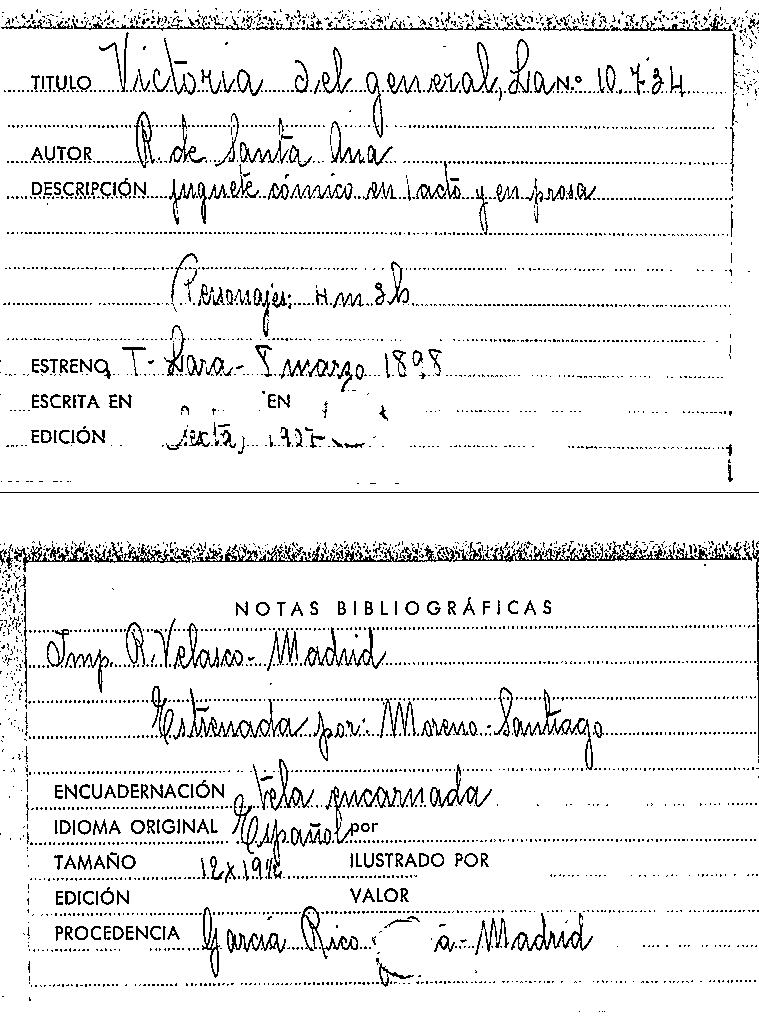 TITULO Victoria del general, La N.º 10.734
AUTOR R. de Santa Ana
DESCRIPCIÓN juguete cómico en 1 acto y en prosa
Personajes: 4 m 3 h
ESTRENO T- Lara - 8 marzo 1898
ESCRITA EN EN
EDICIÓN sexta,
NOTAS BIBLIOGRÁFICAS
Imp. R. Velasco - Madrid
Estrenada por: Moreno - Santiago
ENCUADERNACIÓN tela encarnada
IDIOMA ORIGINAL Español por
TAMAÑO ILUSTRADO POR
EDICIÓN VALOR
PROCEDENCIA García Rico - Madrid